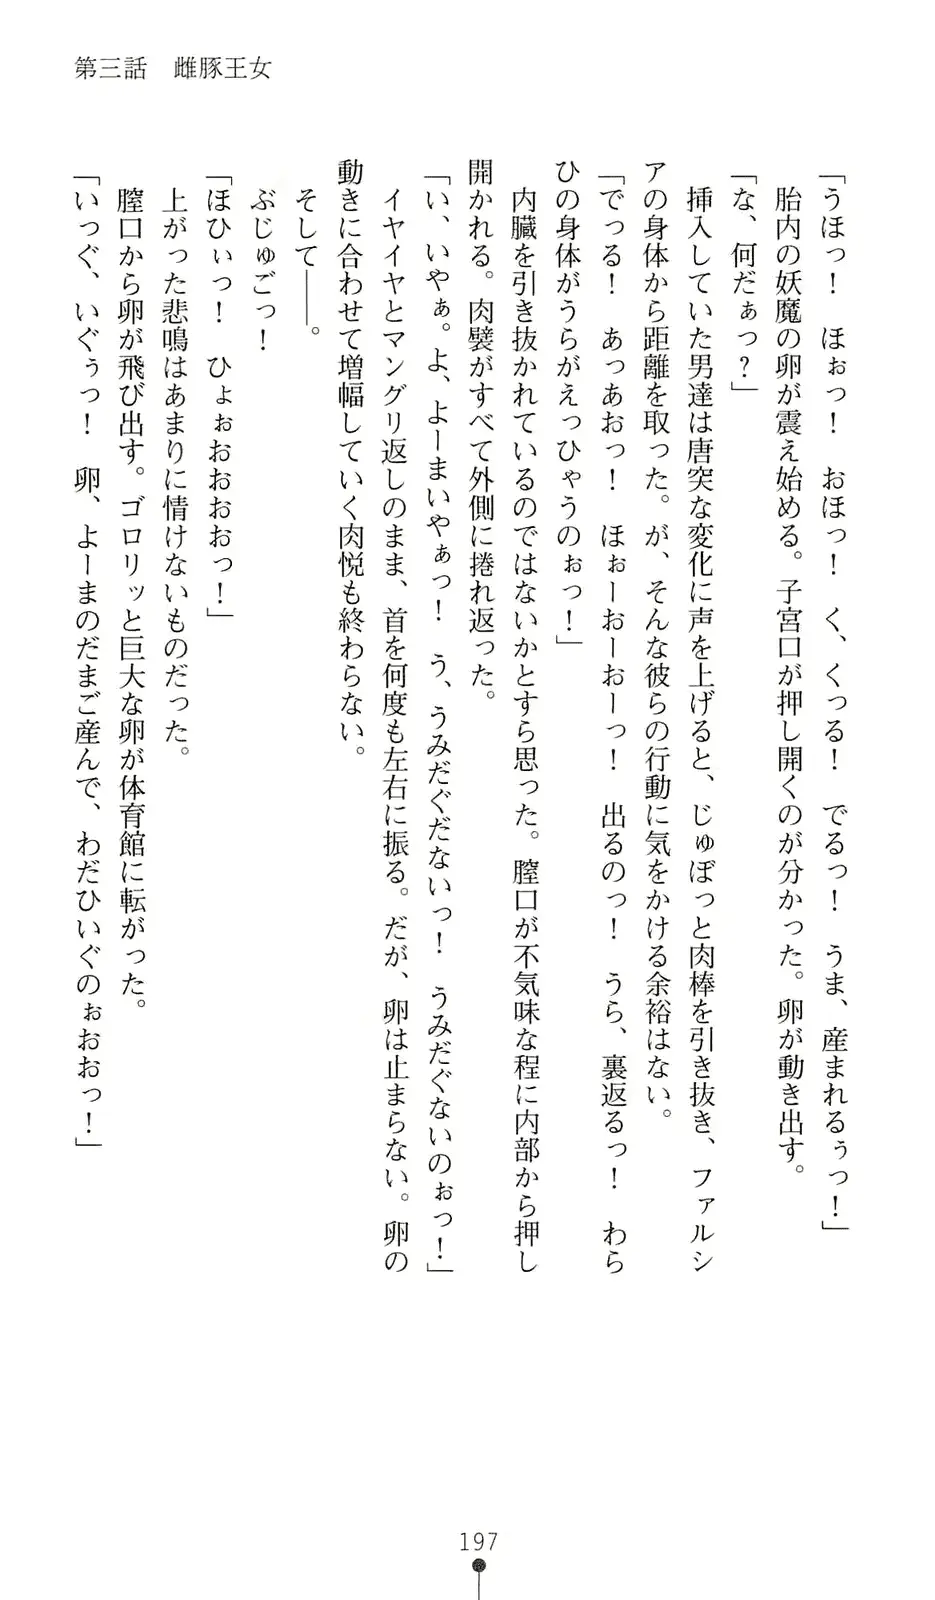 第三話　雌豚王女
「うほっ！　ほぉっ！　おほっ！　く、くっる！　でるっ！　うま、産まれるぅっ！」
　胎内の妖魔の卵が震え始める。子宮口が押し開くのが分かった。卵が動き出す。
「な、何だぁっ？」
　挿入していた男達は唐突な変化に声を上げると、じゅぼっと肉棒を引き抜き、ファルシ
アの身体から距離を取った。が、そんな彼らの行動に気をかける余裕はない。
「でっる！　あっあおっ！　ほぉーおーおーっ！　出るのっ！　うら、裏返るっ！　わら
ひの身体がうらがえっひゃうのぉっ！」
　内臓を引き抜かれているのではないかとすら思った。膣口が不気味な程に内部から押し
開かれる。肉襞がすべて外側に捲れ返った。
「い、いやぁ。よ、よーまいやぁっ！　う、うみだぐだないっ！　うみだぐないのぉっ！」
　イヤイヤとマングリ返しのまま、首を何度も左右に振る。だが、卵は止まらない。卵の
動きに合わせて増幅していく肉悦も終わらない。
　そして――。
　ぶじゅごっ！
「ほひぃっ！　ひょぉおおおおっ！」
　上がった悲鳴はあまりに情けないものだった。
　膣口から卵が飛び出す。ゴロリッと巨大な卵が体育館に転がった。
「いっぐ、いぐぅっ！　卵、よーまのだまご産んで、わだひいぐのぉおおっ！」
197